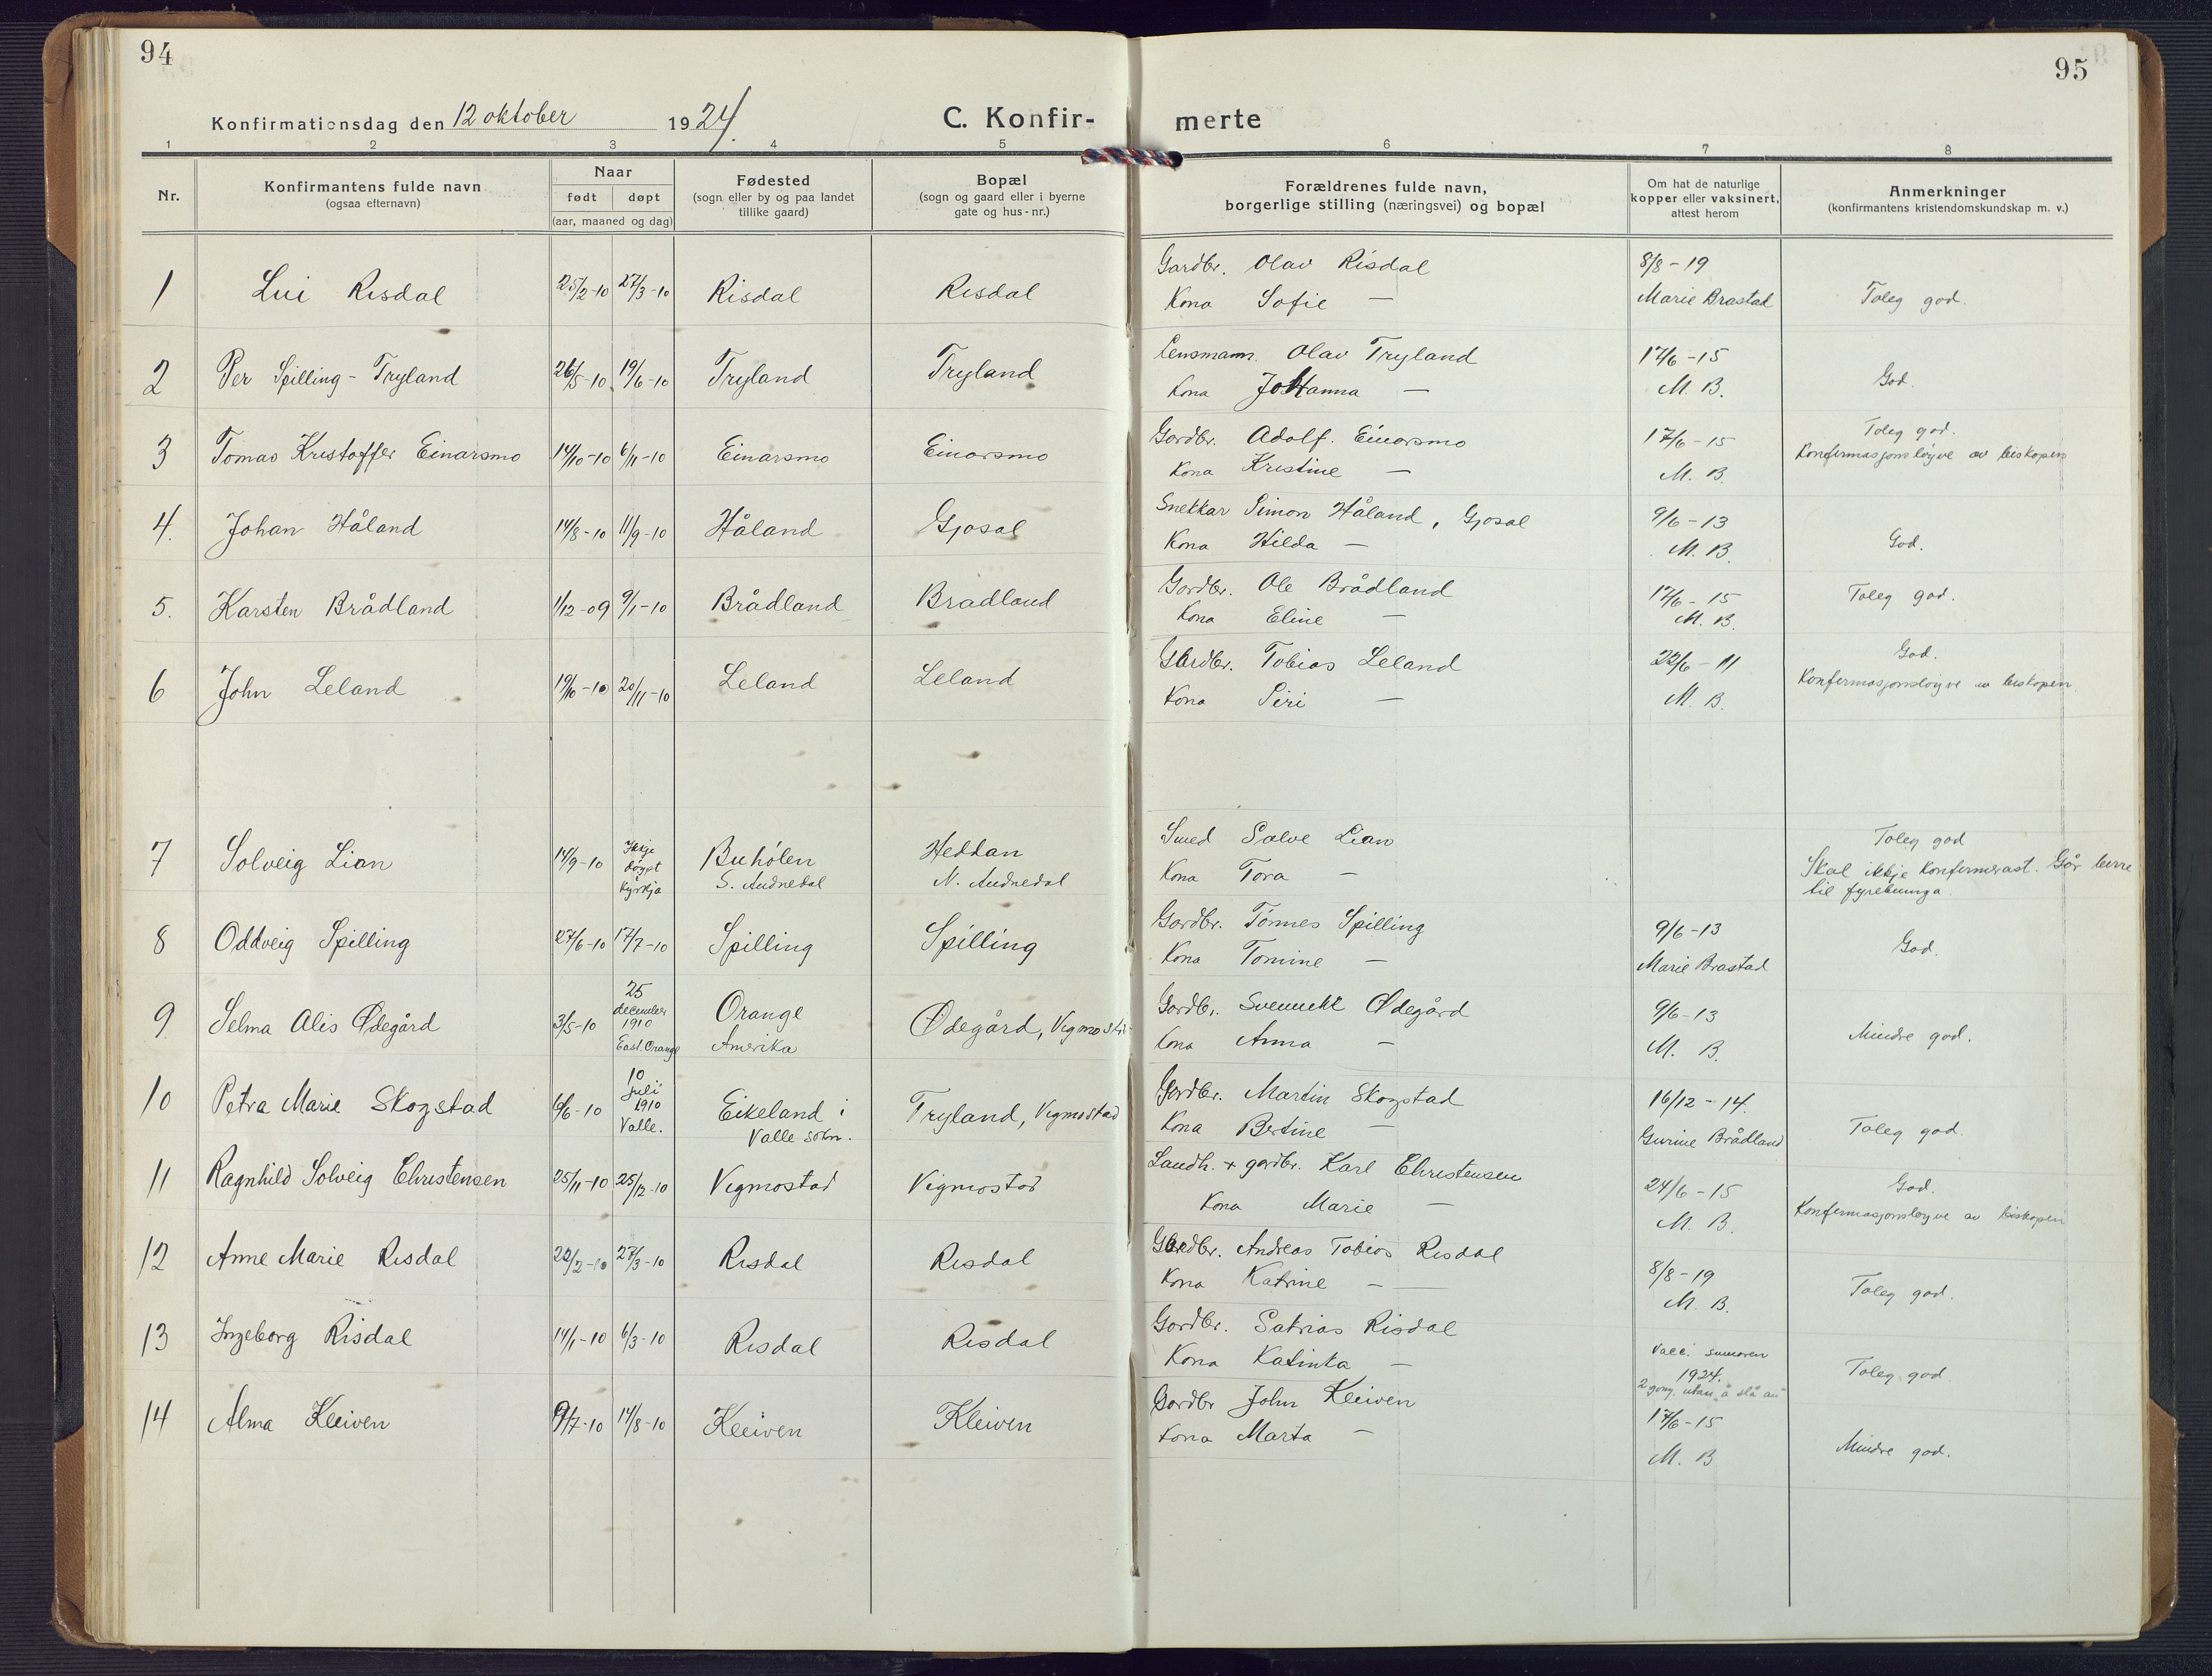 94
95
Konfirmationsdag den 12 oktober 1924.
C. Konfir-
merte
1 2 3 4 5 6 7 8
Nr.
Konfirmantens fulde navn
(ogsaa efternavn)
Naar
født døpt
(aar, maaned og dag)
Fødested
(sogn eller by og paa landet
tillike gaard)
Bopæl
(sogn og gaard eller i byerne
gate og hus-nr.)
Forældrenes fulde navn,
borgerlige stilling (næringsvei) og bopæl
Om hat de naturlige
kopper eller vaksinert,
attest herom
Anmerkninger
(konfirmantens kristendomskundskap m. v.)
1 Lui Risdal 25/2-10 27/3-10 Risdal Risdal
Gardbr. Olav Risdal 8/8-19
Kona Sofie — Marie Brastad Toleg god.
2 Per Spilling-Tryland 26/5-10 19/6-10 Tryland Tryland
Lensmann. Olav Tryland 17/6-15
Kona Johanna — M. B. God.
3 Tomas Kristoffer Einarsmo 14/10-10 6/11-10 Einarsmo Einarsmo
Gardbr. Adolf. Einarsmo 17/6-15 Toleg god.
Kona Kristine — M. B. Konfirmasjonsløyve av biskopen
4. Johan Håland 14/8-10 11/9-10 Håland Gjosal
Snekkar Simon Håland, Gjosal 9/6-13
Kona Hilda — M. B. God.
5. Karsten Brådland 1/12-09 9/1-10 Brådland Bradland
Gardbr. Ole Brådland 17/6-15 Toleg god.
Kona Eline — M. B.
6 John Leland 19/10-10 20/11-10 Leland Leland
Gardbr. Tobias Leland 22/6-11 God.
Kona Siri — M. B. Konfirmasjonsløyve av biskopen.
7 Solveig Lian 14/9-10 Ikkje døypt kyrkja Buhølen Heddan
S. Audnedal N. Audnedal
Smed Salve Lian Toleg god
Kona Tora — Skal ikkje konfirmerast. Går berre
til fyrebuinga.
8 Oddveig Spilling 27/6-10 17/7-10 Spilling Spilling
Gardbr. Tønnes Spilling 9/6-13
Kona Tomine — Marie Brastad God.
9 Selma Alis Ødegård 3/5-10 25 december 1910 East. Orange Orange
Amerika Ødegård, Vigmostad
Gardbr. Ødegård 9/6-13
Kona Anna — M. B. Mindre god.
10 Petra Marie Skogstad 6/6-10 10 juli 1910 Valle. Eikeland i
Valle sokn. Tryland, Vigmostad
Gardbr. Martin Skogstad 16/12-14.
Kona Bertine — Gurine Brådland Toleg god.
11 Ragnhild Solveig Christensen 25/11-10 25/12-10 Vigmostad Vigmostad
Landh. + gardbr. Karl Christensen 24/6-15 God.
Kona Marie — M. B. Konfirmasjonsløyve av biskopen
12 Anne Marie Risdal 22/2-10 27/3-10 Risdal Risdal
Gardbr. Andreas Tobias Risdal 8/8-19
Kona Katrine — M. B. Toleg god.
13 Ingeborg Risdal 14/1-10 6/3-10 Risdal Risdal
Gardbr. Risdal Vacc. sumaren
Kona Katinka — 1924. Toleg god
2 gong. utan å slå an
14 Alma Kleiven 9/7-10 14/8-10 Kleiven Kleiven
Gardbr John Kleiven 17/6-15
Kona Marta — M. B Mindre god.